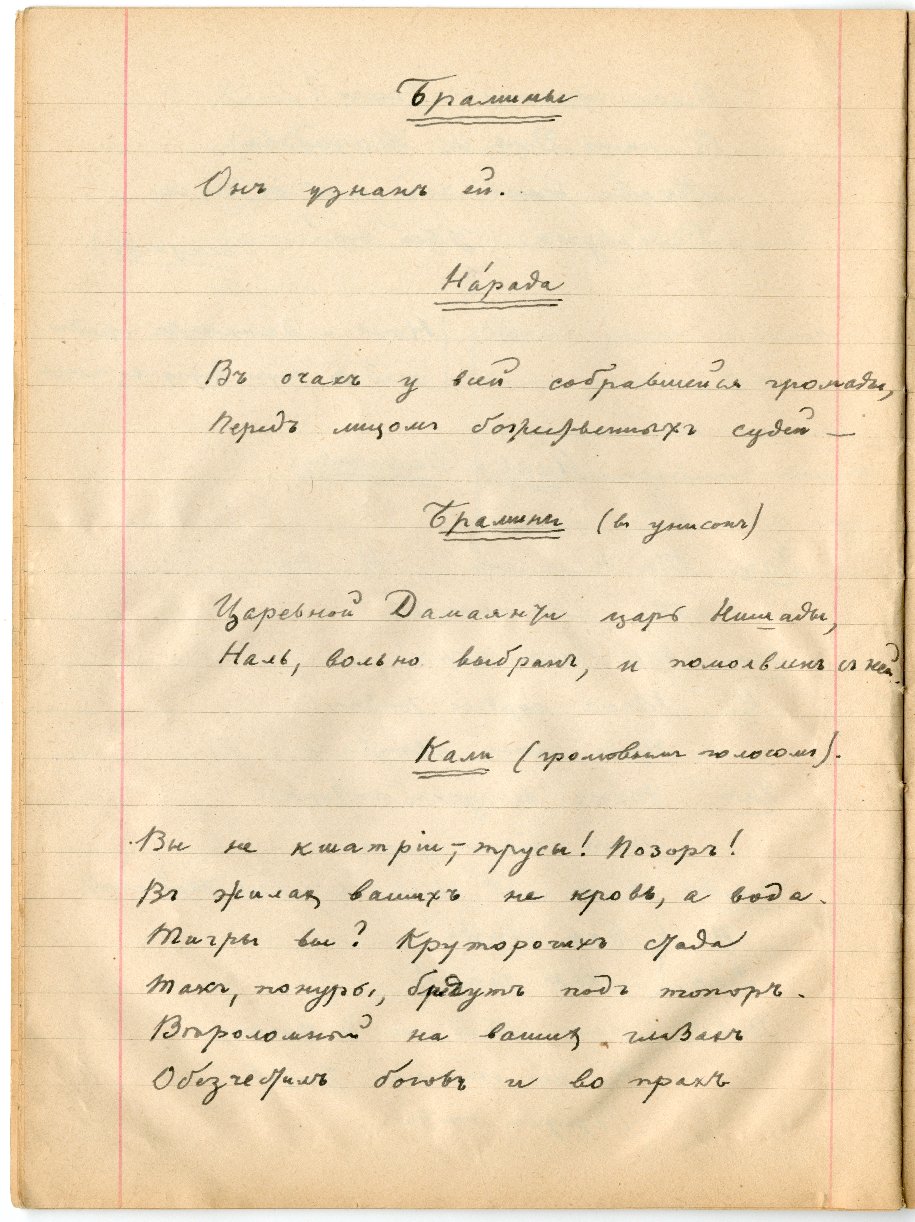 Брамины
Онъ узнанъ ей.
На́рада
Въ очахъ у всей собравшейся громады,
Передъ лицомъ божественныхъ судей —
Брамины (въ унисонъ)
Царевной Дамаянти царь Нишады,
Наль, вольно выбранъ, и помолвленъ съ ней.
Кали (громовымъ голосомъ).
Вы не кшатріи, – трусы! Позоръ!
Въ жилахъ вашихъ не кровь, а вода.
Тигры вы? Круторогихъ стада
Такъ, понуры, бредутъ подъ топоръ.
Вѣроломный на вашихъ глазахъ
Обезчестилъ боговъ и во прахъ